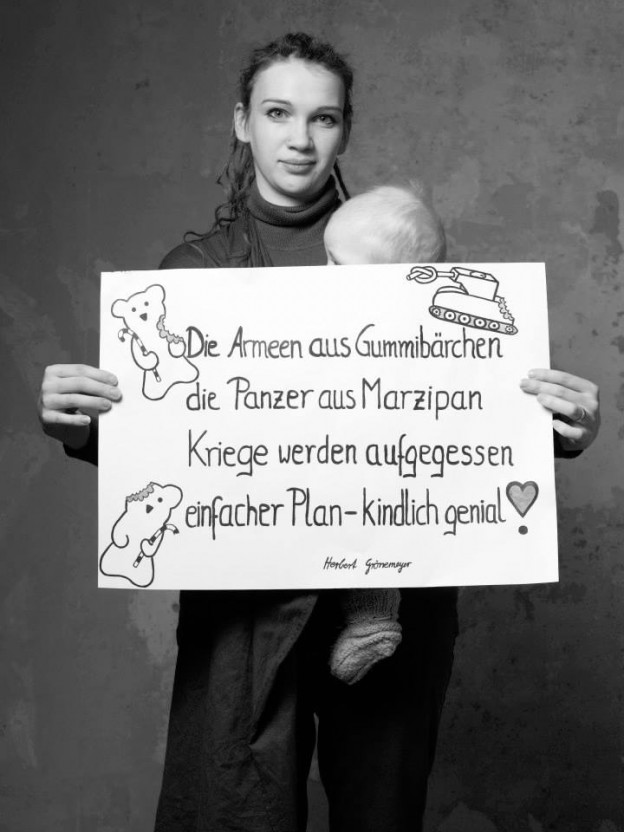 Die Armeen aus Gummibärchen
die Panzer aus Marzipan
Kriege werden aufgegessen
einfacher Plan - kindlich genial!
Herbert Grönemeyer